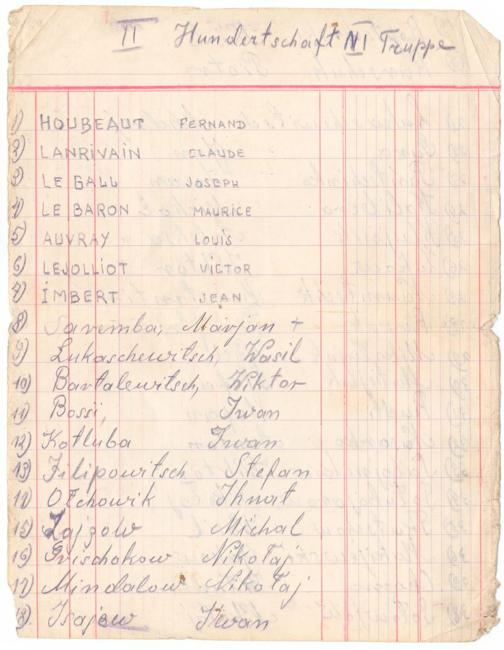 II Hundertschaft VI Truppe
1) HOUBEAUT FERNAND
2) LANRIVAIN CLAUDE
3) LE GALL JOSEPH
4) LE BARON MAURICE
5) AUVRAY LOUIS
6) LEJOLLIOT VICTOR
7) IMBERT JEAN
8) Saremba, Marjan +
9) Lukaschewitsch, Wasil
10) Bartalewitsch, Wiktor
11) Bossi, Iwan
12) Kotluba Iwan
13) Filipowitsch Stefan
14) Olchowik Ihnat
15) Zajzow Michal
16) Grischokow Nikołaj
17) Mindalow Nikołaj
18) Isajew Iwan